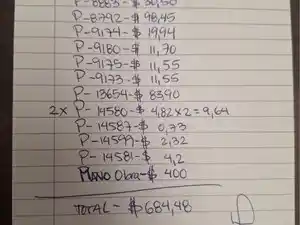 P-8883-$ 30,50
P-8792-$ 98,45
P-9174-$ 19,94
P-9180-$ 11,70
P-9175-$ 11,55
P-9173-$ 11,55
P-13654-$ 83,90
2x P-14580-$ 4,82x2=9,64
P-14587-$ 0,73
P-14599-$ 2,32
P-14581-$ 4,2
MANO Obra-$ 400
TOTAL-$ 684,48